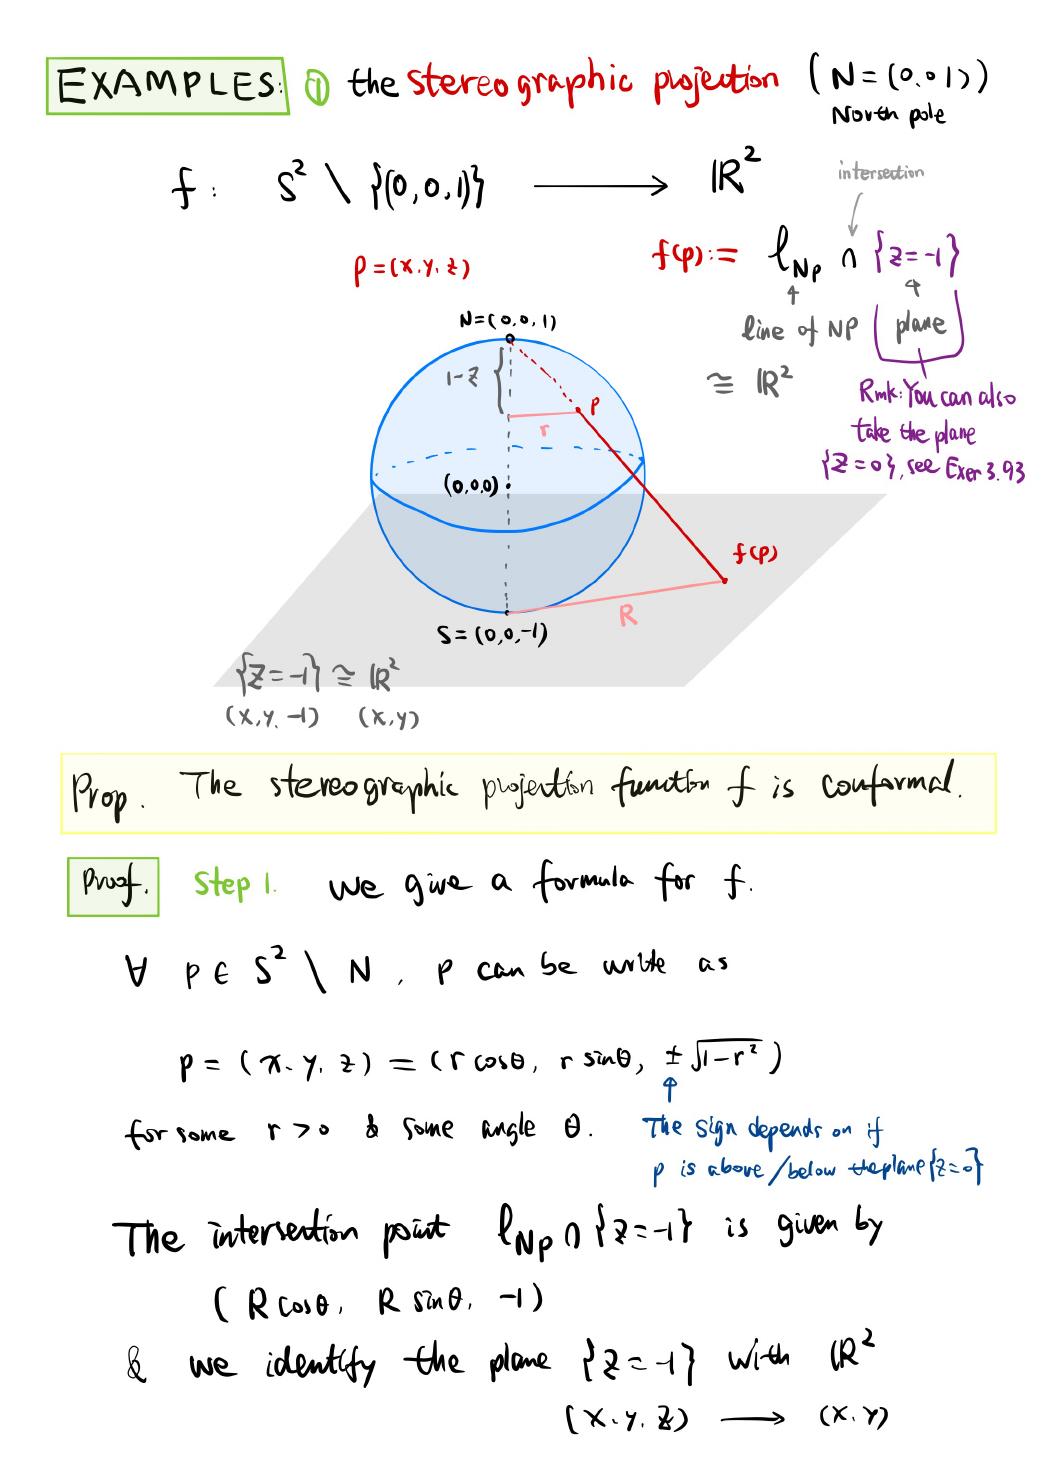 EXAMPLES: ① the stereographic projection (N=(0.01))
North pole
f: S² \ {(0,0,1)} ⟶ ℝ²
intersection
p=(x.y.z)
f(p):= ℓ_Np ∩ {z=-1}
line of NP
plane
≅ ℝ²
Rmk: You can also
take the plane
{z=0}, see Exer 3.93
N=(0,0,1)
1-z
p
r
(0,0,0)
f(p)
R
S=(0,0,-1)
{z=-1} ≅ ℝ²
(x,y,-1) (x,y)
Prop. The stereographic projection function f is conformal.
Proof. Step 1. We give a formula for f.
∀ p ∈ S² \ N, p can be write as
p = (x.y.z) = (r cosθ, r sinθ, ±√(1-r²))
for some r>0 & some angle θ.
The sign depends on if
p is above/below the plane {z=0}
The intersection point ℓ_Np ∩ {z=-1} is given by
(R cosθ, R sinθ, -1)
& we identify the plane {z=-1} with ℝ²
(x.y.z) ⟶ (x.y)